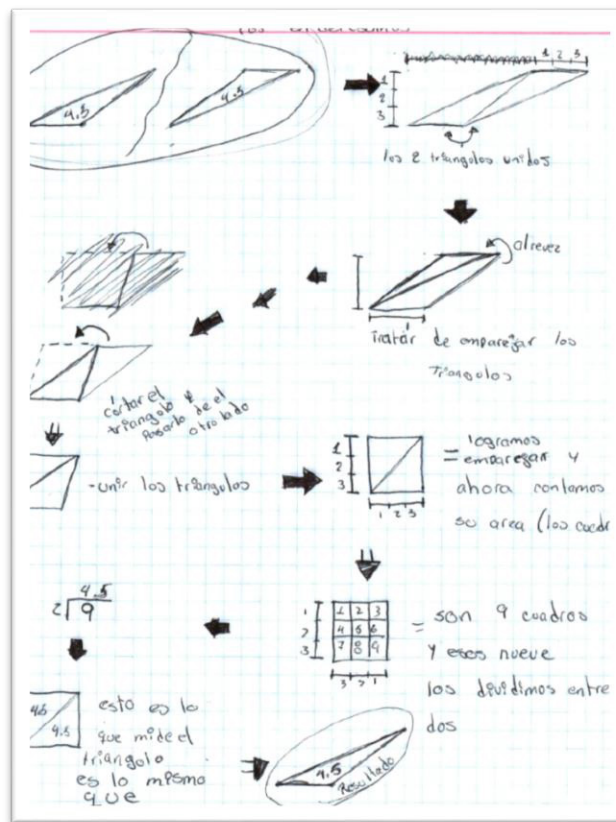 4.5
4.5
1 2 3
1
2
3
los 2 triangulos unidos
alrevez
tratar de emparejar los
triangulos
cortar el
triangulo y
pasarlo de el
otro lado
-unir los triangulos
1
2
3
1 2 3
= logramos
emparegar y
ahora contamos
su area (los cuadr
4.5
2 9
1
2
3
1 2 3
4 5 6
7 8 9
3 2 1
= son 9 cuadros
y esos nueve
los dividimos entre
dos
4.5
4.5
esto es lo
que mide el
triangulo
es lo mismo
que
4.5
Resultado